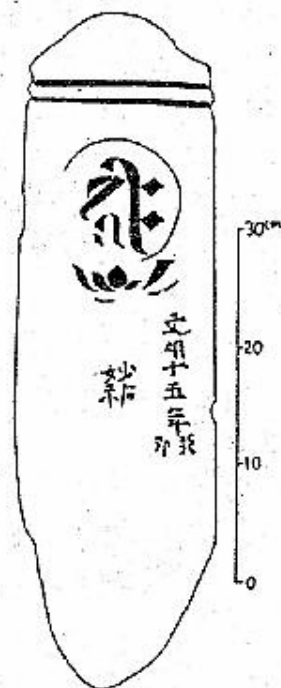 𑖮𑖿𑖨𑖱𑖾
文明十五年癸卯
妙
30cm
20
10
0